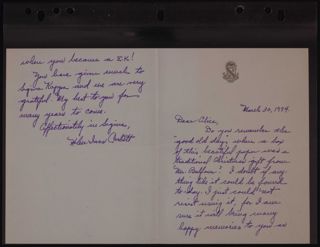 March 30, 1974.
Dear Alice,
Do you remember the
"good old days" when a box
of this beautiful paper was a
traditional Christmas gift from
Mr. Balfour? I doubt if any
thing like it could be found
to-day. I just could not
resist using it, for I am
sure it will bring many
happy memories to you as
when you became a ΣK!
You have given much to
Sigma Kappa and we are very
grateful. My best to you for
many years to come.
Affectionately in Sigma,